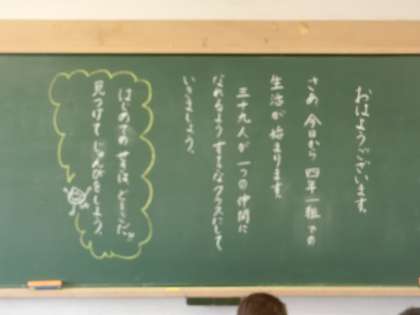 おはようございます。
さあ、今日から四年一組での
生活が始まります。
三十九人が一つの仲間に
なれるようすてきなクラスにして
いきましょう。
はじめての せきは どこかな
見つけて じゅんびをしよう。